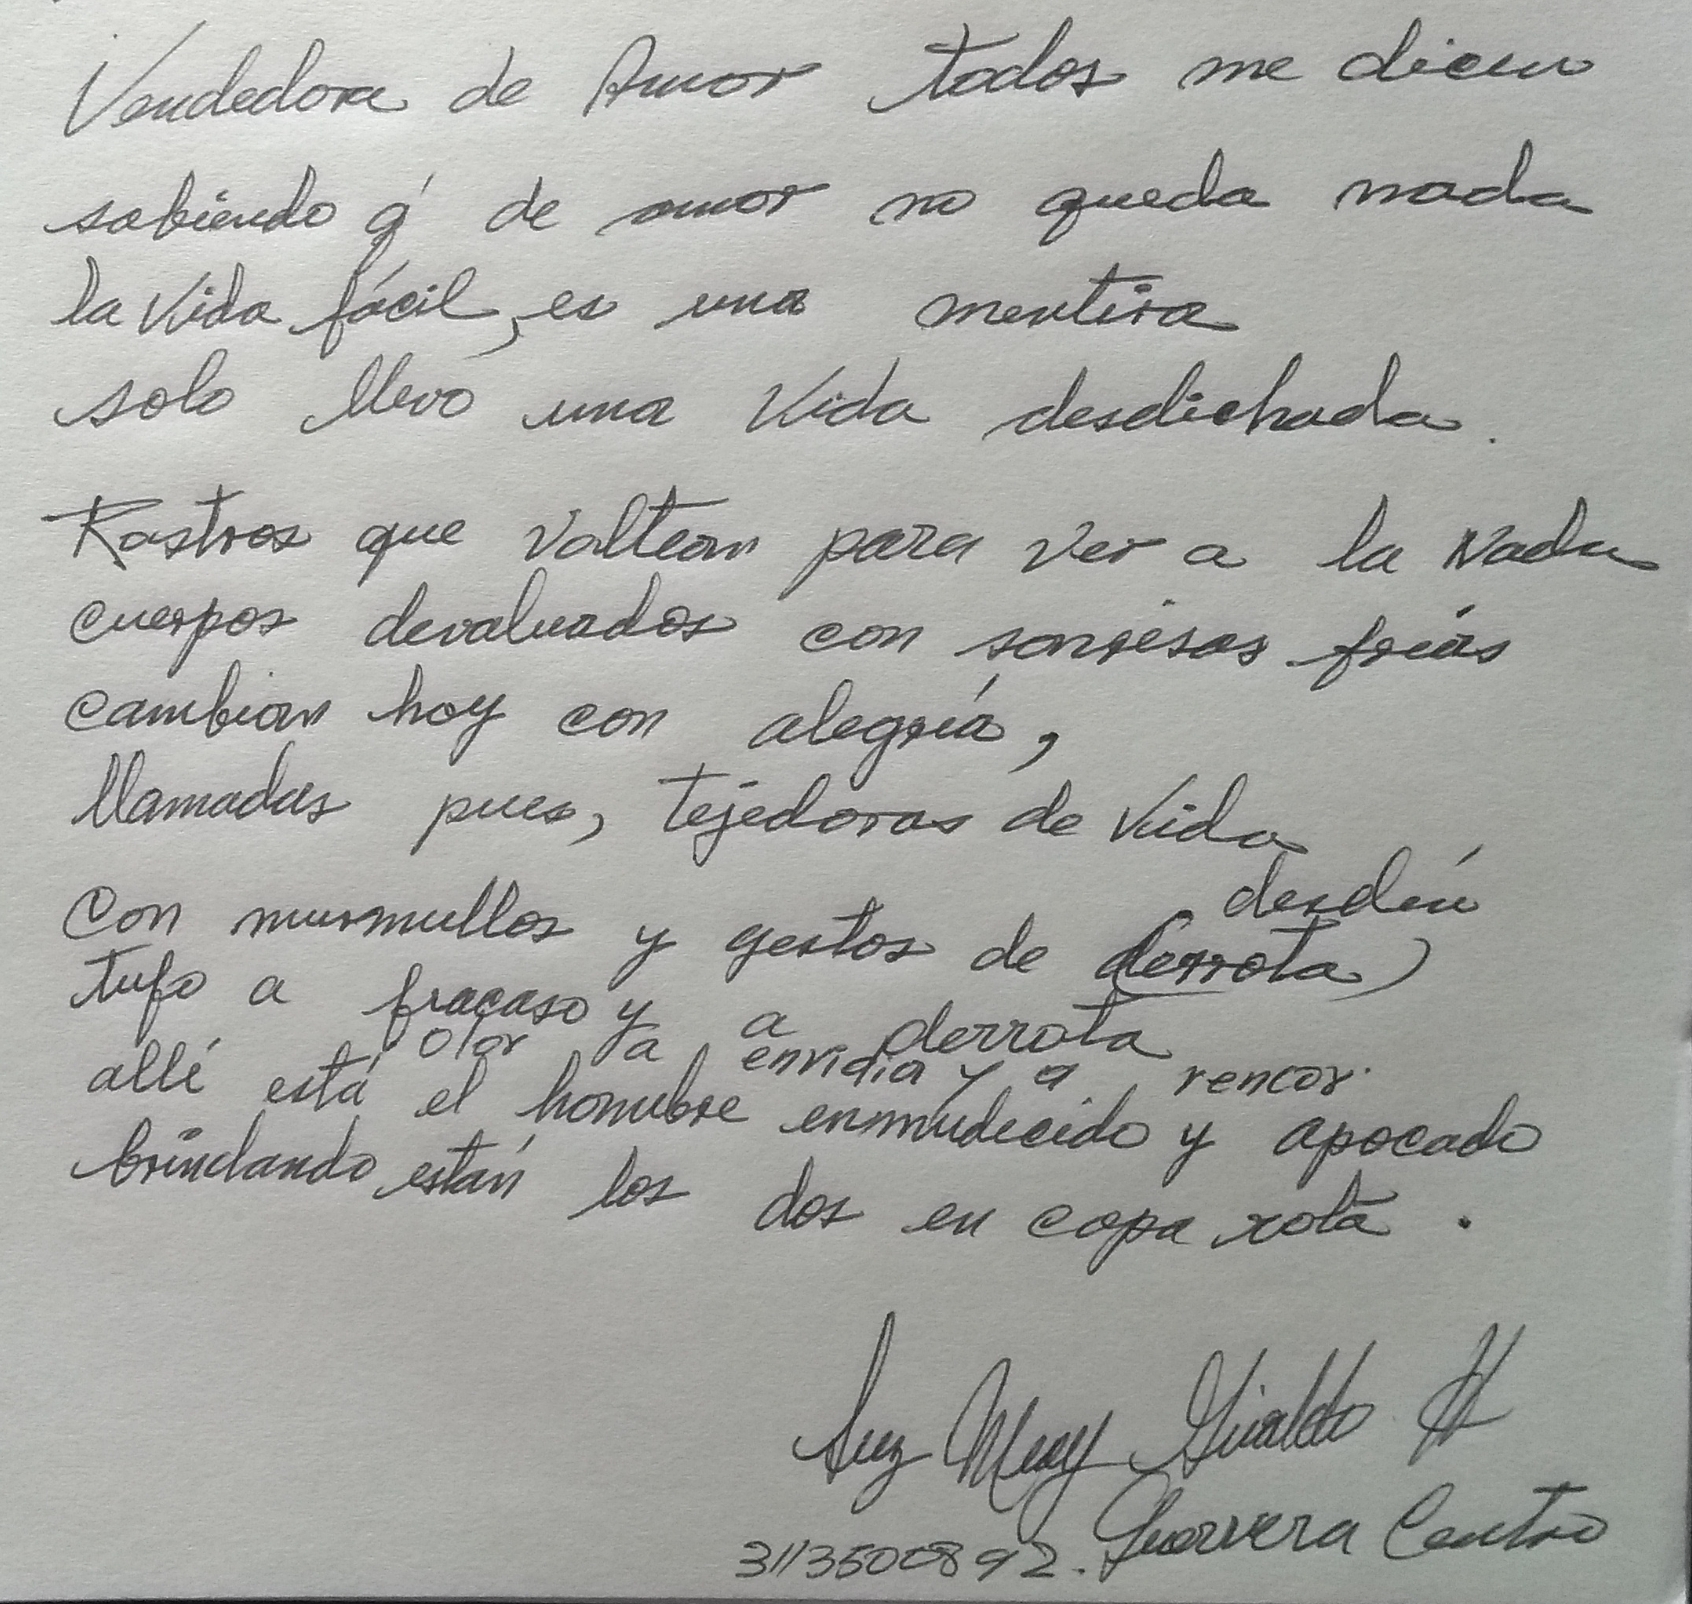 Vendedora de Amor todos me dicen
sabiendo q' de amor no queda nada
la vida fácil, es una mentira
solo llevo una vida desdichada.
Rostros que voltean para ver a la Nada
cuerpos devaluados con sonrisas frías
cambian hoy con alegría,
llamadas pues, tejedoras de vida
desdén
Con murmullos y gestos de derrota,
tufo a fracaso y a derrota
olor a envidia y a rencor.
allí está el hombre enmudecido y apocado
brindando están los dos en copa rota.
Luz Mery Giraldo H
3113500892. Guerrera Centro